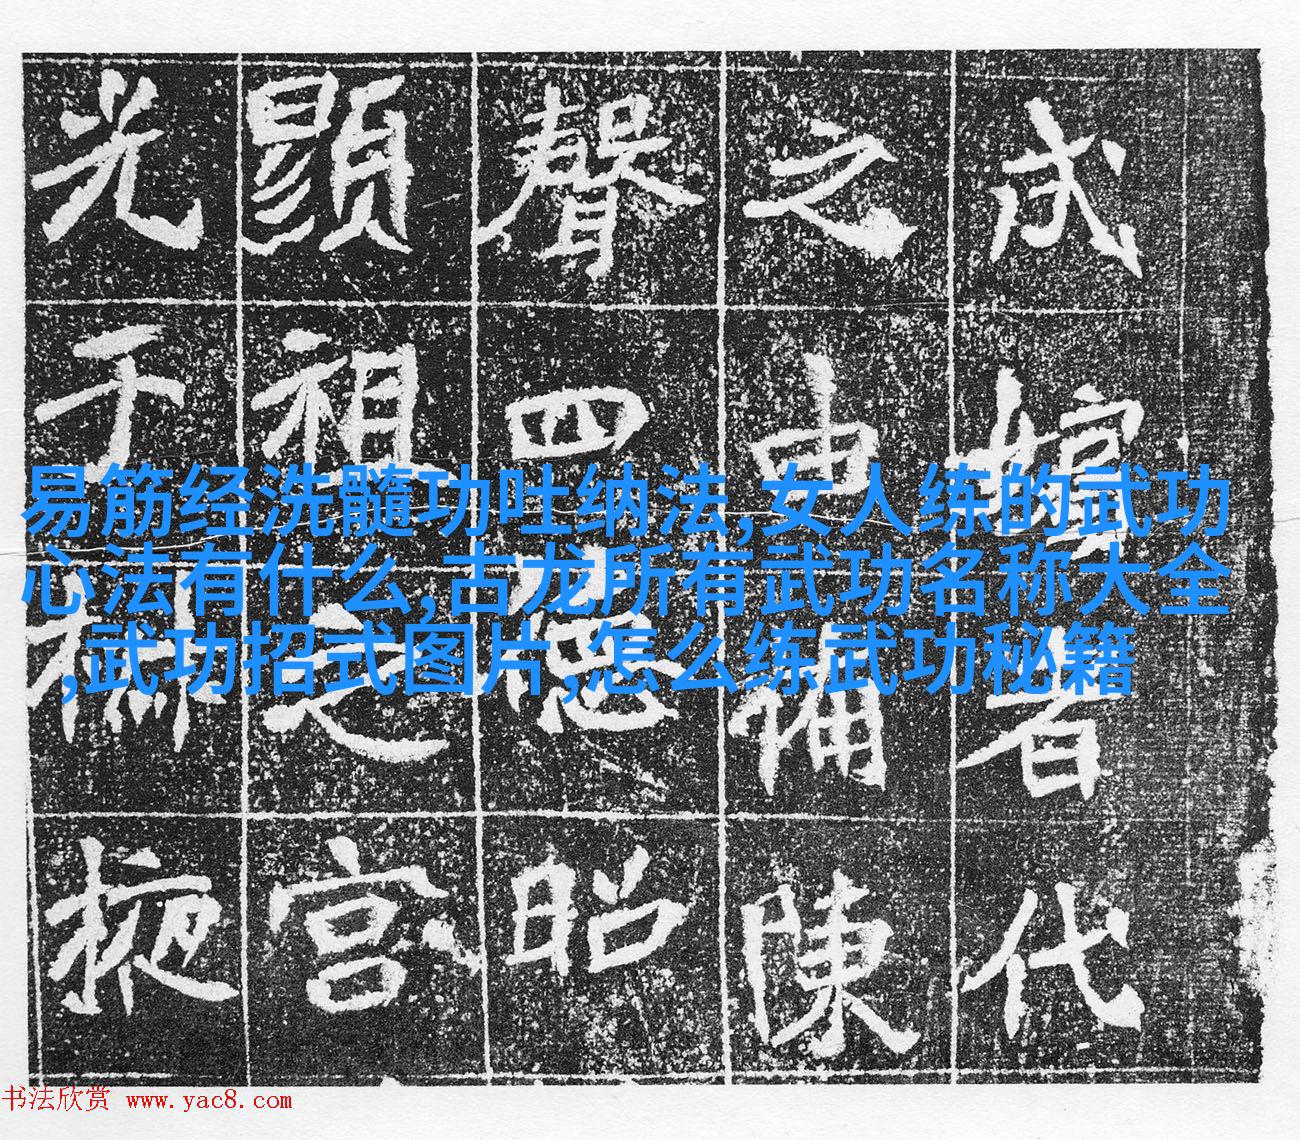 代
之申備陳
聲四德昭
顯祖之宮
光于掖
易筋经洗髓功吐纳法,女人练的武功
心法有什么,古龙所有武功名称大全
,武功招式图片,怎么练武功秘籍
书法欣赏 www.yac8.com